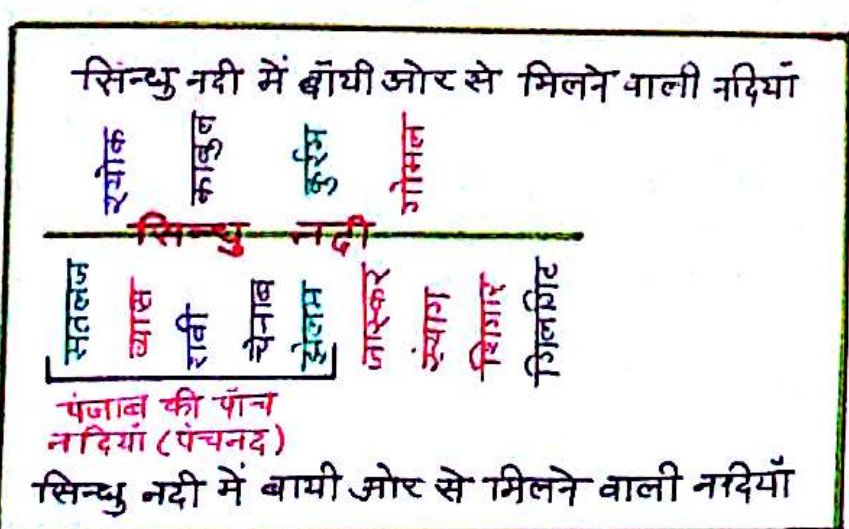 सिन्धु नदी में बाँयी ओर से मिलने वाली नदियाँ
श्योक काबुल कुर्रम गोमल
सिन्धु नदी
सतलज व्यास रावी चेनाब झेलम जास्कर स्यांग शिगार गिलगिट
पंजाब की पाँच
नदियां (पंचनद)
सिन्धु नदी में बायी ओर से मिलने वाली नदियाँ